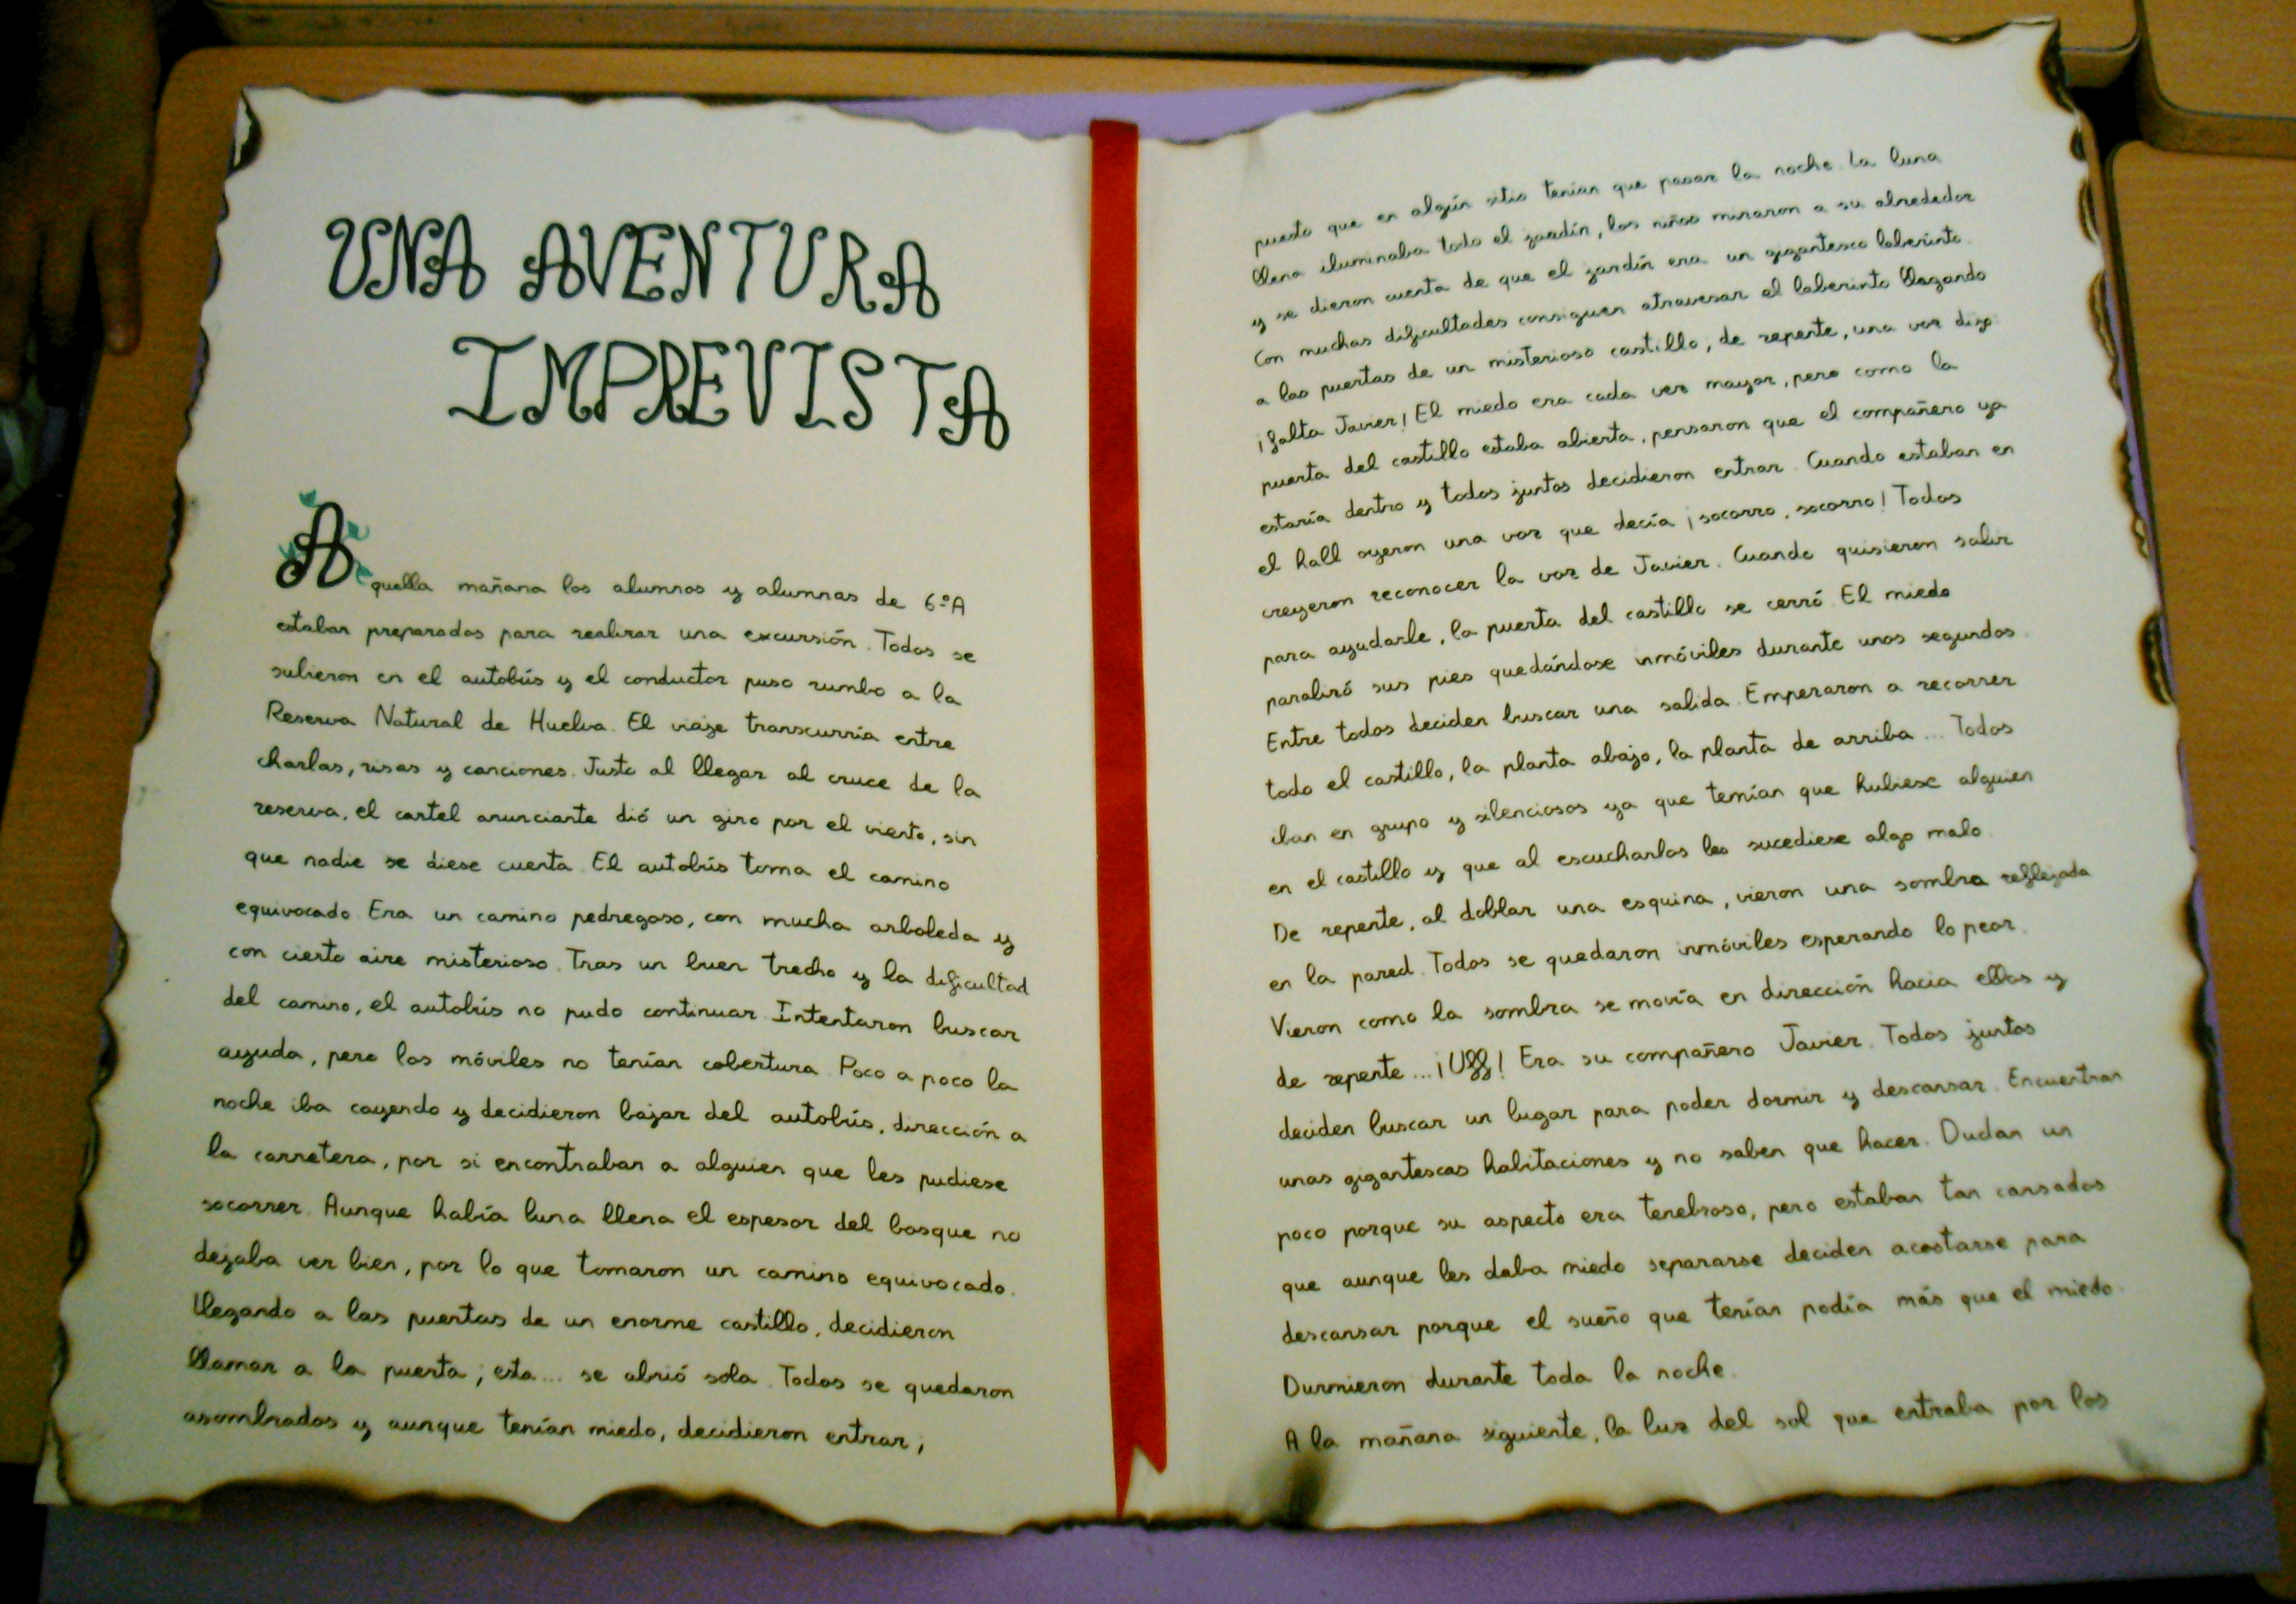 UNA AVENTURA
IMPREVISTA
Aquella mañana los alumnos y alumnas de 6ºA
estaban preparados para realizar una excursión. Todos se
subieron en el autobús y el conductor puso rumbo a la
Reserva Natural de Huelva. El viaje transcurría entre
charlas, risas y canciones. Justo al llegar al cruce de la
reserva, el cartel anunciante dió un giro por el viento, sin
que nadie se diese cuenta. El autobús toma el camino
equivocado. Era un camino pedregoso, con mucha arboleda y
con cierto aire misterioso. Tras un buen trecho y la dificultad
del camino, el autobús no pudo continuar. Intentaron buscar
ayuda, pero los móviles no tenían cobertura. Poco a poco la
noche iba cayendo y decidieron bajar del autobús, dirección a
la carretera, por si encontraban a alguien que les pudiese
socorrer. Aunque había luna llena el espesor del bosque no
dejaba ver bien, por lo que tomaron un camino equivocado.
Llegando a las puertas de un enorme castillo, decidieron
llamar a la puerta; esta... se abrió sola. Todos se quedaron
asombrados y aunque tenían miedo, decidieron entrar,
puesto que en algún sitio tenían que pasar la noche. La luna
llena iluminaba todo el jardín, los niños miraron a su alrededor
y se dieron cuenta de que el jardín era un gigantesco laberinto.
Con muchas dificultades consiguen atravesar el laberinto llegando
a las puertas de un misterioso castillo, de repente, una voz dijo:
¡falta Javier! El miedo era cada vez mayor, pero como la
puerta del castillo estaba abierta, pensaron que el compañero ya
estaría dentro y todos juntos decidieron entrar. Cuando estaban en
el hall oyeron una voz que decía ¡socorro, socorro! Todos
creyeron reconocer la voz de Javier. Cuando quisieron salir
para ayudarle, la puerta del castillo se cerró. El miedo
paralizó sus pies quedándose inmóviles durante unos segundos.
Entre todos deciden buscar una salida. Empezaron a recorrer
todo el castillo, la planta abajo, la planta de arriba... Todos
iban en grupo y silenciosos ya que temían que hubiese alguien
en el castillo y que al escucharlos les sucediese algo malo.
De repente, al doblar una esquina, vieron una sombra reflejada
en la pared. Todos se quedaron inmóviles esperando lo peor.
Vieron como la sombra se movía en dirección hacia ellos y
de repente...¡Uff! Era su compañero Javier. Todos juntos
deciden buscar un lugar para poder dormir y descansar. Encuentran
unas gigantescas habitaciones y no saben que hacer. Dudan un
poco porque su aspecto era tenebroso, pero estaban tan cansados
que aunque les daba miedo separarse deciden acostarse para
descansar porque el sueño que tenían podía más que el miedo.
Durmieron durante toda la noche.
A la mañana siguiente, la luz del sol que entraba por los